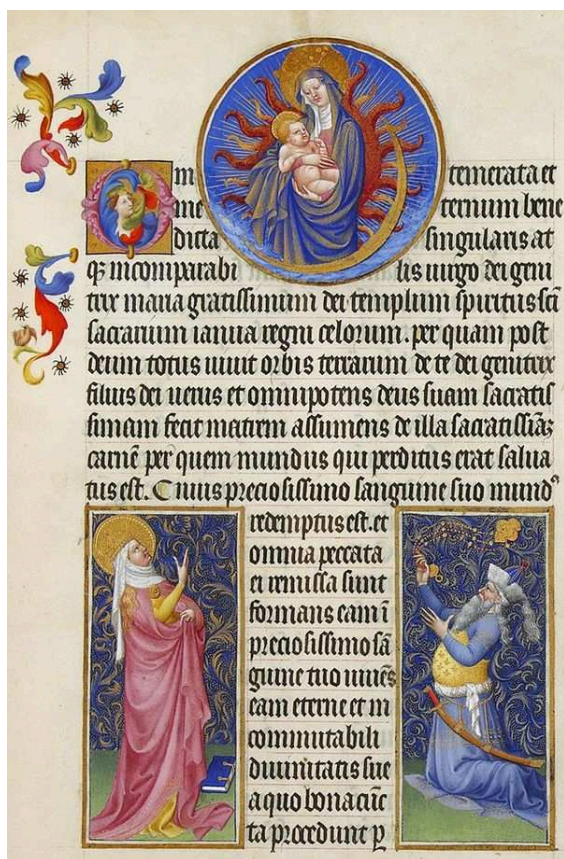 O m temerata et
me ternum bene
dicta singularis at
q̄ incomparabi lis uirgo dei geni
trix maria gratissimum dei templum spiritus sc̄i
sacrarium ianua regni celorum. per quam post
deum totus uiuit orbis terrarum de te dei genitrix
filius dei uerus et omnipotens deus suam sacratis
simam fecit matrem assumens de illa sacratissiā
carnē per quem mundus qui perditus erat salua
tus est. Cuius preciosissimo sanguine suo mundꝰ
redemptus est. et
omnia peccata
ei remissa sunt
formans eam ī
preciosissimo sā
guine tuo uniēs
eam eterne et in
commutabili
diuinitatis sue
a quo bona cūc
ta procedunt ꝑ